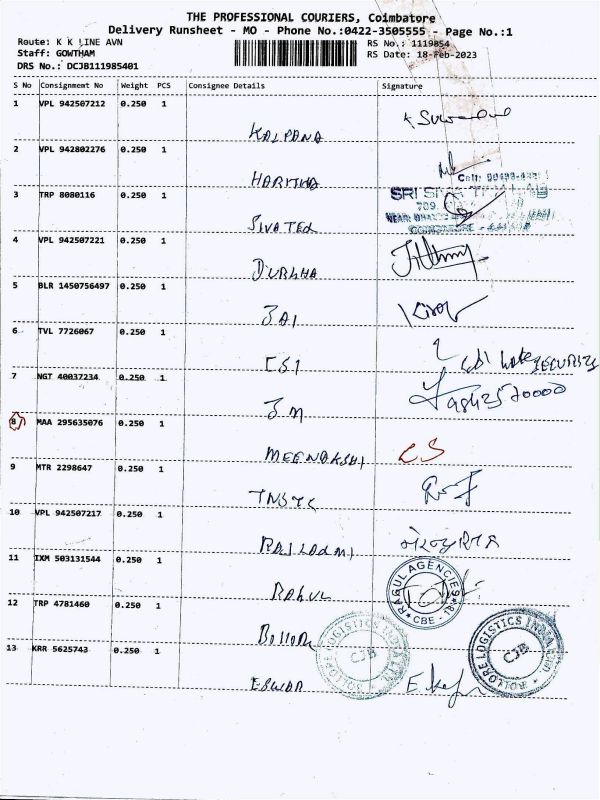 THE PROFESSIONAL COURIERS, Coimbatore
Delivery Runsheet - MO - Phone No.:0422-3505555 - Page No.:1
Route: K K LINE AVN
RS No.: 1119854
Staff: GOWTHAM
RS Date: 18-Feb-2023
DRS No.: DCJB111985401
S No Consignment No Weight PCS Consignee Details Signature
1 VPL 942507212 0.250 1
KALPANA
2 VPL 942802276 0.250 1
HARITHA
3 TRP 8080116 0.250 1
4 VPL 942507221 0.250 1
DURGHA
5 BLR 1450756497 0.250 1
JAI
6 TVL 7726067 0.250 1
CSI SECURITY
7 NGT 40037234 0.250 1
JM 9842570000
8 MAA 295635076 0.250 1
MEENAKSHI
9 MTR 2298647 0.250 1
TNSTC
10 VPL 942507217 0.250 1
RAJLAXMI
11 IXM 503131544 0.250 1
RAHUL
RAGUL AGENCIES CBE
12 TRP 4781460 0.250 1
BOLLORE
BOLLORE LOGISTICS INDIA CJB
BOLLORE LOGISTICS INDIA CJB
13 KRR 5625743 0.250 1
ESWAR